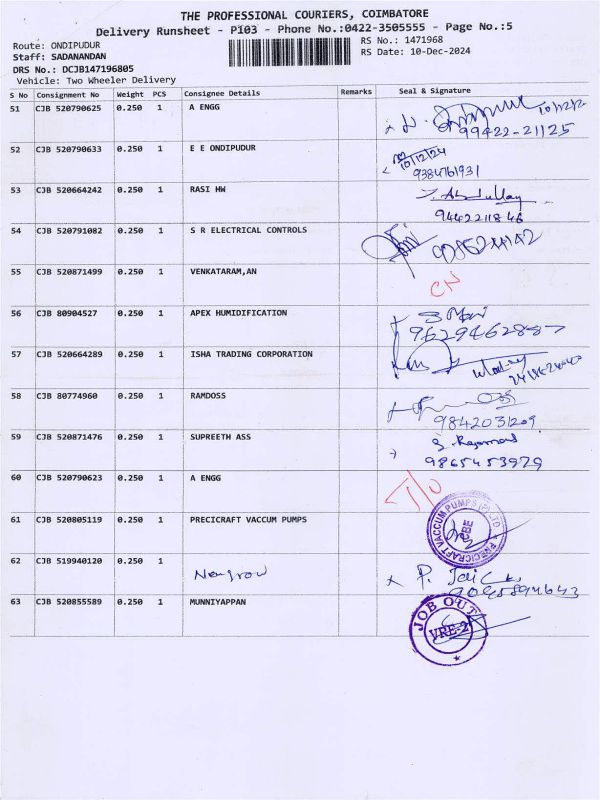 THE PROFESSIONAL COURIERS, COIMBATORE
Delivery Runsheet - P103 - Phone No.:0422-3505555 - Page No.:5
Route: ONDIPUDUR
RS No.: 1471968
Staff: SADANANDAN
RS Date: 10-Dec-2024
DRS No.: DCJB147196805
Vehicle: Two Wheeler Delivery
S No Consignment No Weight PCS Consignee Details Remarks Seal & Signature
51 CJB 520790625 0.250 1 A ENGG
99422-21125
52 CJB 520790633 0.250 1 E E ONDIPUDUR
10/12/24
9384761931
53 CJB 520664242 0.250 1 RASI HW
9442211846
54 CJB 520791082 0.250 1 S R ELECTRICAL CONTROLS
55 CJB 520871499 0.250 1 VENKATARAM,AN
CN
56 CJB 80904527 0.250 1 APEX HUMIDIFICATION
57 CJB 520664289 0.250 1 ISHA TRADING CORPORATION
58 CJB 80774960 0.250 1 RAMDOSS
9842031209
59 CJB 520871476 0.250 1 SUPREETH ASS
9865453929
60 CJB 520790623 0.250 1 A ENGG
61 CJB 520805119 0.250 1 PRECICRAFT VACCUM PUMPS
PRECICRAFT VACCUM PUMPS (P) LTD
CBE
62 CJB 519940120 0.250 1
63 CJB 520855589 0.250 1 MUNNIYAPPAN
JOB OUT
VRE-2